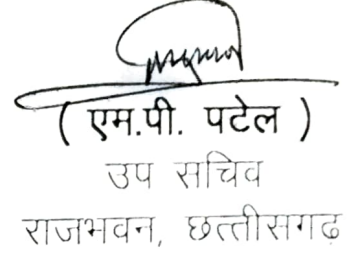 ( एम.पी. पटेल )
उप सचिव
राजभवन, छत्तीसगढ़